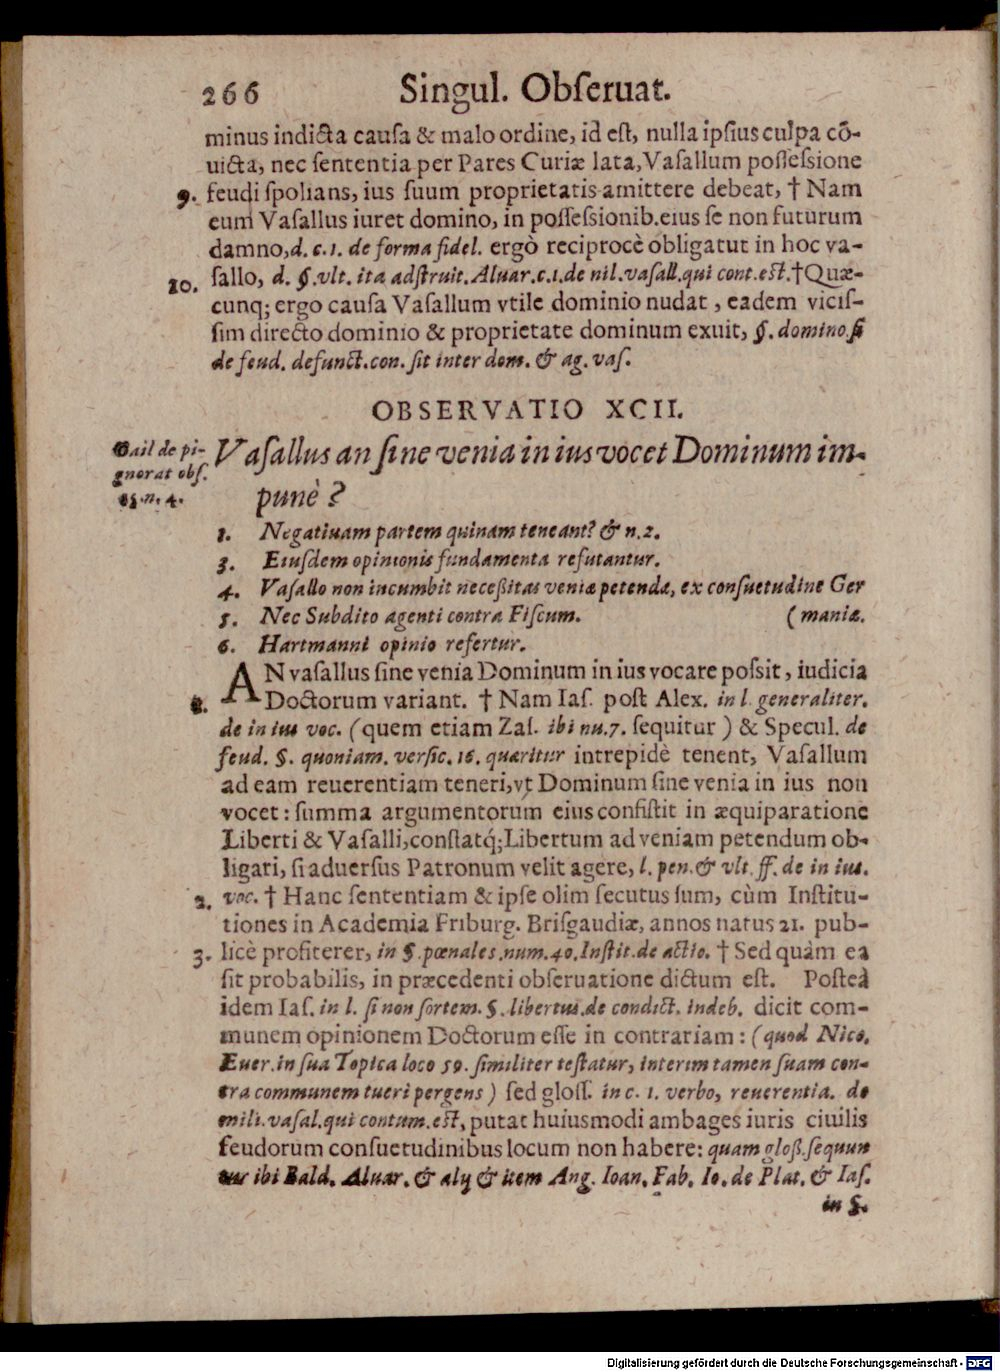 266 Singul. Obſeruat.
minus indicta cauſa & malo ordine, id eſt, nulla ipſius culpa cõ-
uicta, nec ſententia per Pares Curiæ lata, Vaſallum poſſeſsione
9. feudi ſpolians, ius ſuum proprietatis amittere debeat, † Nam
cum Vaſallus iuret domino, in poſſeſsionib. eius ſe non futurum
damno, d. c. 1. de forma fidel. ergò reciprocè obligatut in hoc va-
10. ſallo, d. §. vlt. ita adſtruit. Aluar. c. 1. de nil. vaſall. qui cont. eſt. † Quæ-
cunq; ergo cauſa Vaſallum vtile dominio nudat, eadem viciſ-
ſim directo dominio & proprietate dominum exuit, §. domino. ſi
de feud. defunct. con. ſit inter dom. & ag. vaſ.
OBSERVATIO XCII.
Gail de pi-
gnorat obſ.
Vaſallus an ſine venia in ius vocet Dominum im-
punè ?
1. Negatiuam partem quinam teneant? & n. 2.
3. Eiuſdem opinionis fundamenta refutantur.
4. Vaſallo non incumbit neceßitas veniæ petendæ, ex conſuetudine Ger
5. Nec Subdito agenti contra Fiſcum. ( maniæ.
6. Hartmanni opinio refertur.
AN vaſallus ſine venia Dominum in ius vocare poſsit, iudicia
Doctorum variant. † Nam Iaſ. poſt Alex. in l. generaliter.
de in ius voc. ( quem etiam Zaſ. ibi nu. 7. ſequitur ) & Specul. de
feud. §. quoniam. verſic. 16. quæritur intrepidè tenent, Vaſallum
ad eam reuerentiam teneri, vt Dominum ſine venia in ius non
vocet : ſumma argumentorum eius conſiſtit in æquiparatione
Liberti & Vaſalli, conſtatq́; Libertum ad veniam petendum ob-
ligari, ſi aduerſus Patronum velit agere, l. pen. & vlt. ff. de in ius.
2. voc. † Hanc ſententiam & ipſe olim ſecutus ſum, cùm Inſtitu-
tiones in Academia Friburg. Briſgaudiæ, annos natus 21. pub-
3. licè profiterer, in §. pœnales. num. 40. Inſtit. de actio. † Sed quàm ea
ſit probabilis, in præcedenti obſeruatione dictum eſt. Poſteà
idem Iaſ. in l. ſi non ſortem. §. libertus. de condict. indeb. dicit com-
munem opinionem Doctorum eſſe in contrariam : ( quod Nico.
Euer. in ſua Topica loco 59. ſimiliter teſtatur, interim tamen ſuam con-
tra communem tueri pergens ) ſed gloſſ. in c. 1. verbo, reuerentia. de
mili. vaſal. qui contum. eſt, putat huiuſmodi ambages iuris ciuilis
feudorum conſuetudinibus locum non habere: quam gloß. ſequun
tur ibi Bald. Aluar. & alij & item Ang. Ioan. Fab. Io. de Plat. & Iaſ.
in §.
Digitalisierung gefördert durch die Deutsche Forschungsgemeinschaft - DFG